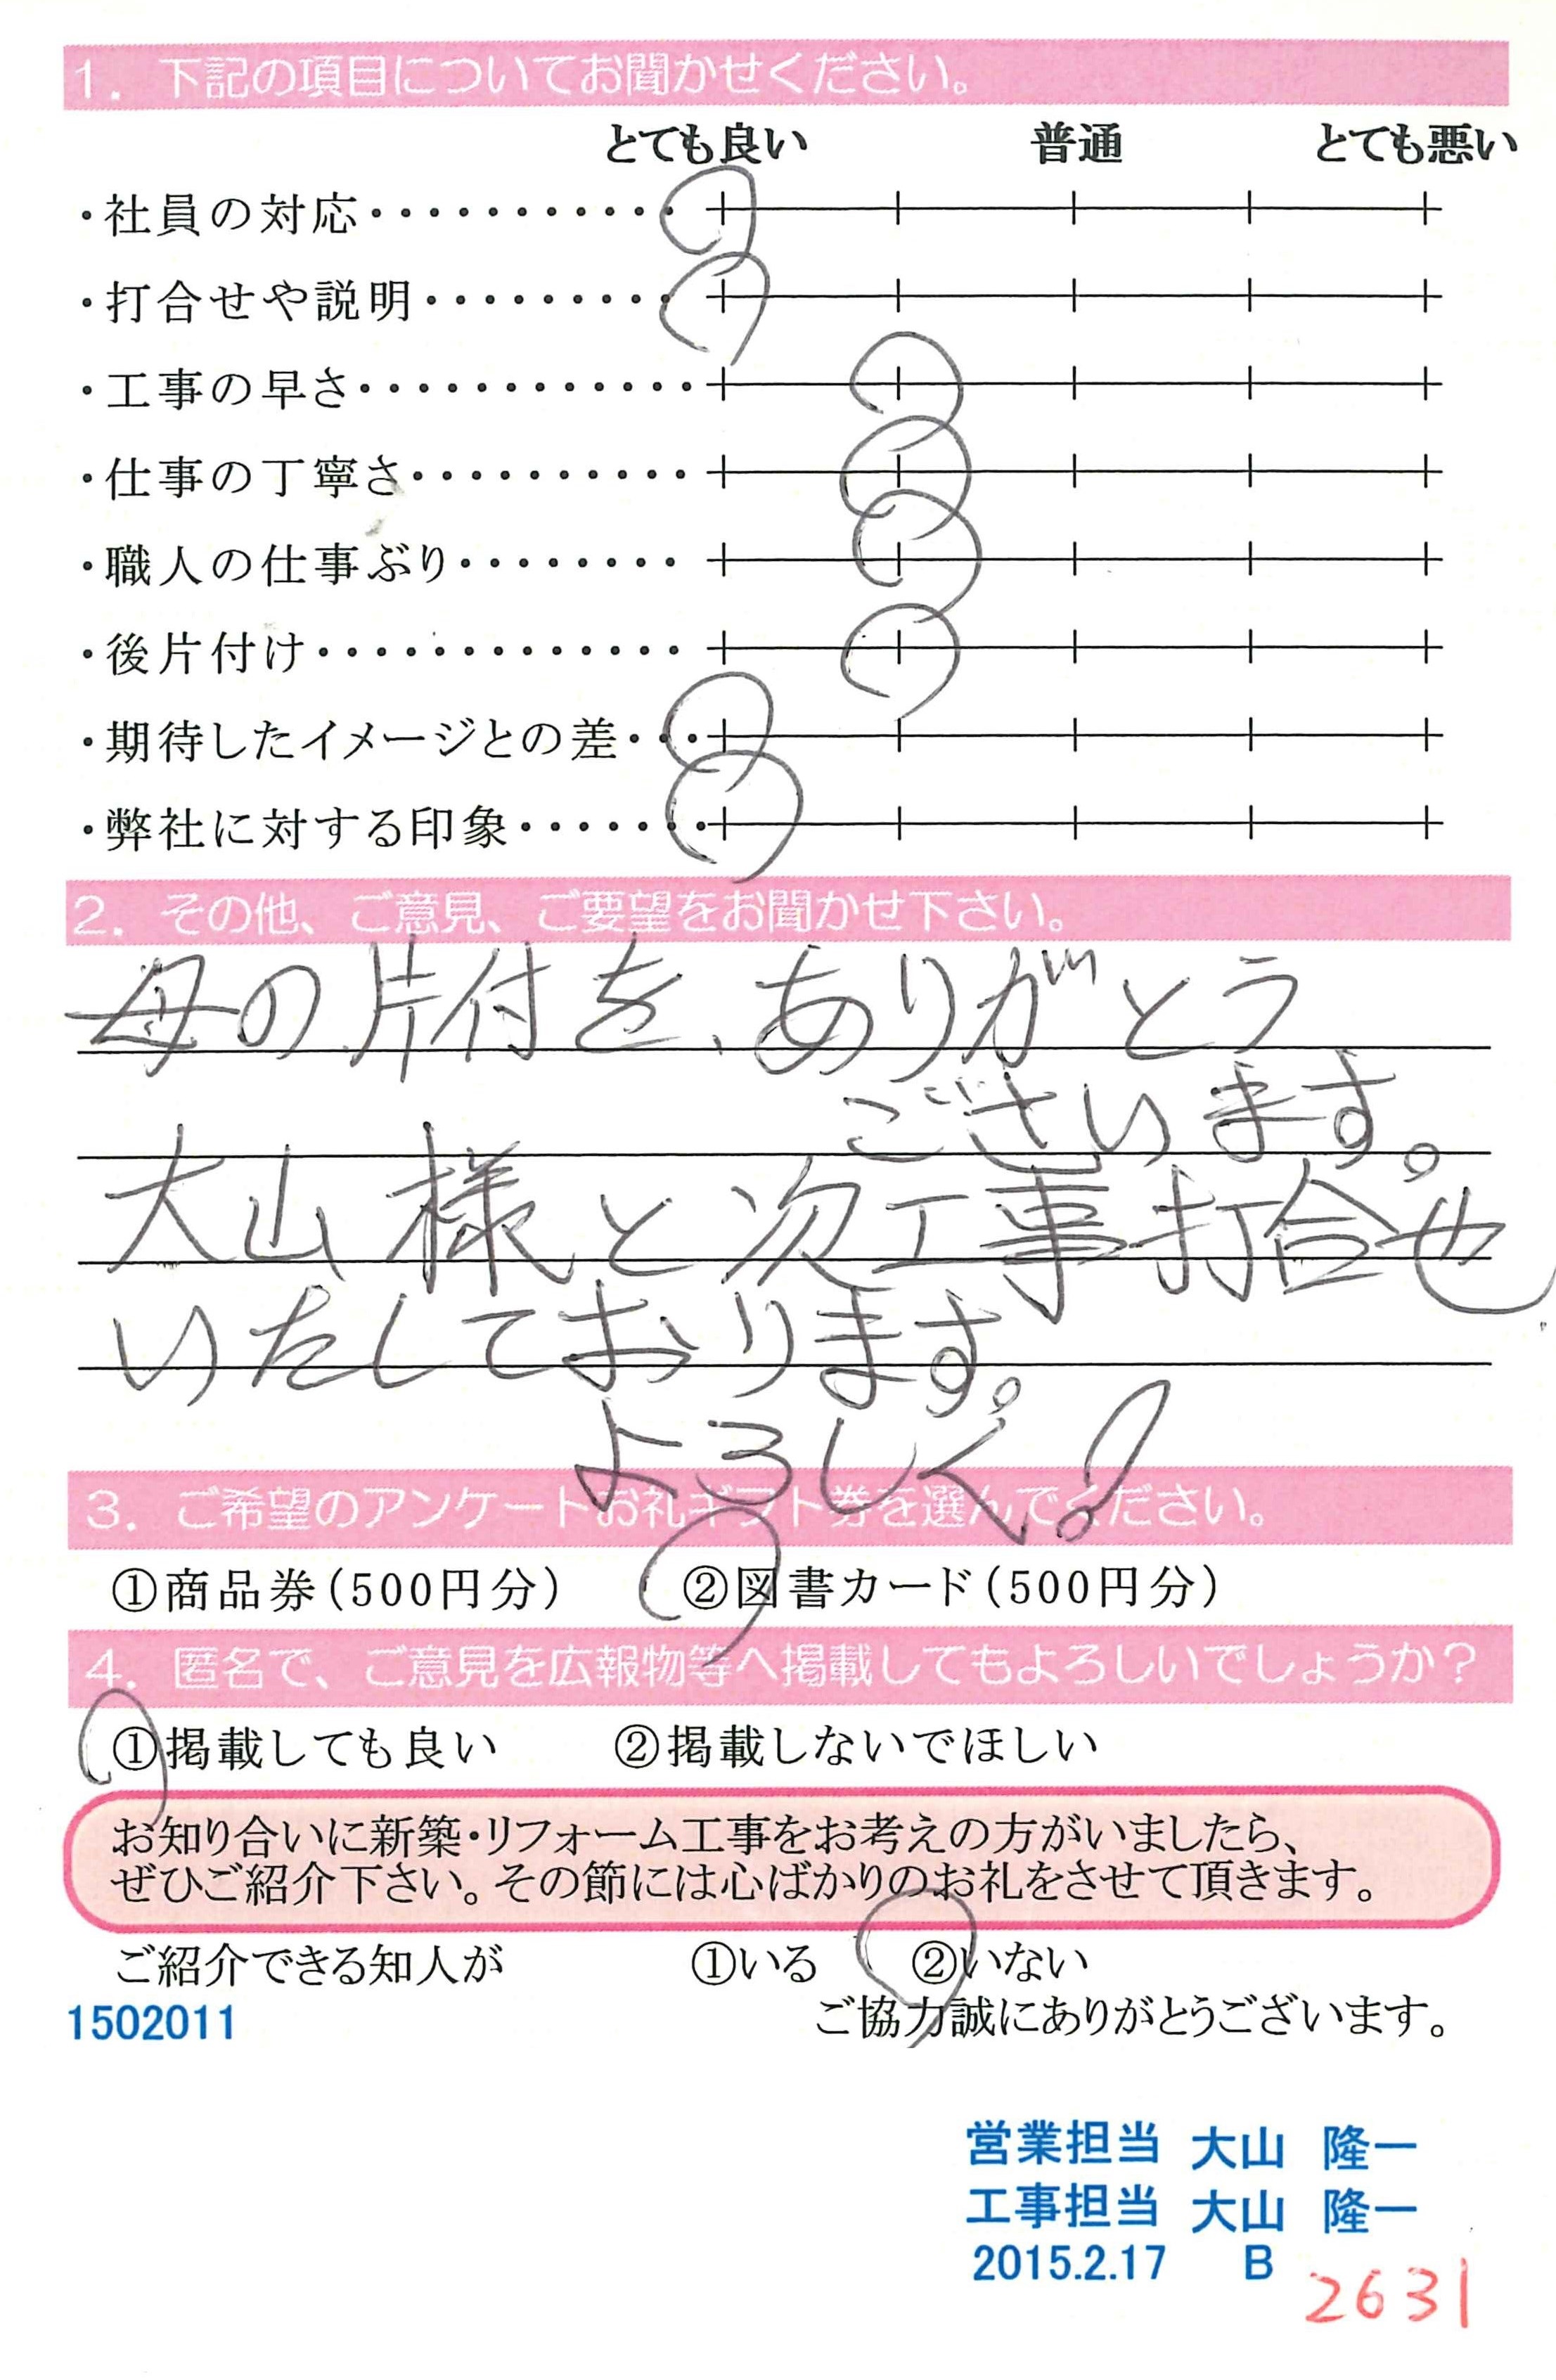 1. 下記の項目についてお聞かせください。
とても良い 普通 とても悪い
・社員の対応・・・・・・・・・・・
・打合せや説明・・・・・・・・・
・工事の早さ・・・・・・・・・・・・
・仕事の丁寧さ・・・・・・・・・・
・職人の仕事ぶり・・・・・・・・
・後片付け・・・・・・・・・・・・・
・期待したイメージとの差・・・
・弊社に対する印象・・・・・・・
2. その他、ご意見、ご要望をお聞かせ下さい。
母の片付を、ありがとう
ございます。
大山様と次工事打合せ
いたしております。
よろしく!
3. ご希望のアンケートお礼ギフト券を選んでください。
①商品券(500円分) ②図書カード(500円分)
4. 匿名で、ご意見を広報物等へ掲載してもよろしいでしょうか?
①掲載しても良い ②掲載しないでほしい
お知り合いに新築・リフォーム工事をお考えの方がいましたら、
ぜひご紹介下さい。その節には心ばかりのお礼をさせて頂きます。
ご紹介できる知人が ①いる ②いない
1502011 ご協力誠にありがとうございます。
営業担当 大山 隆一
工事担当 大山 隆一
2015.2.17 B
2631